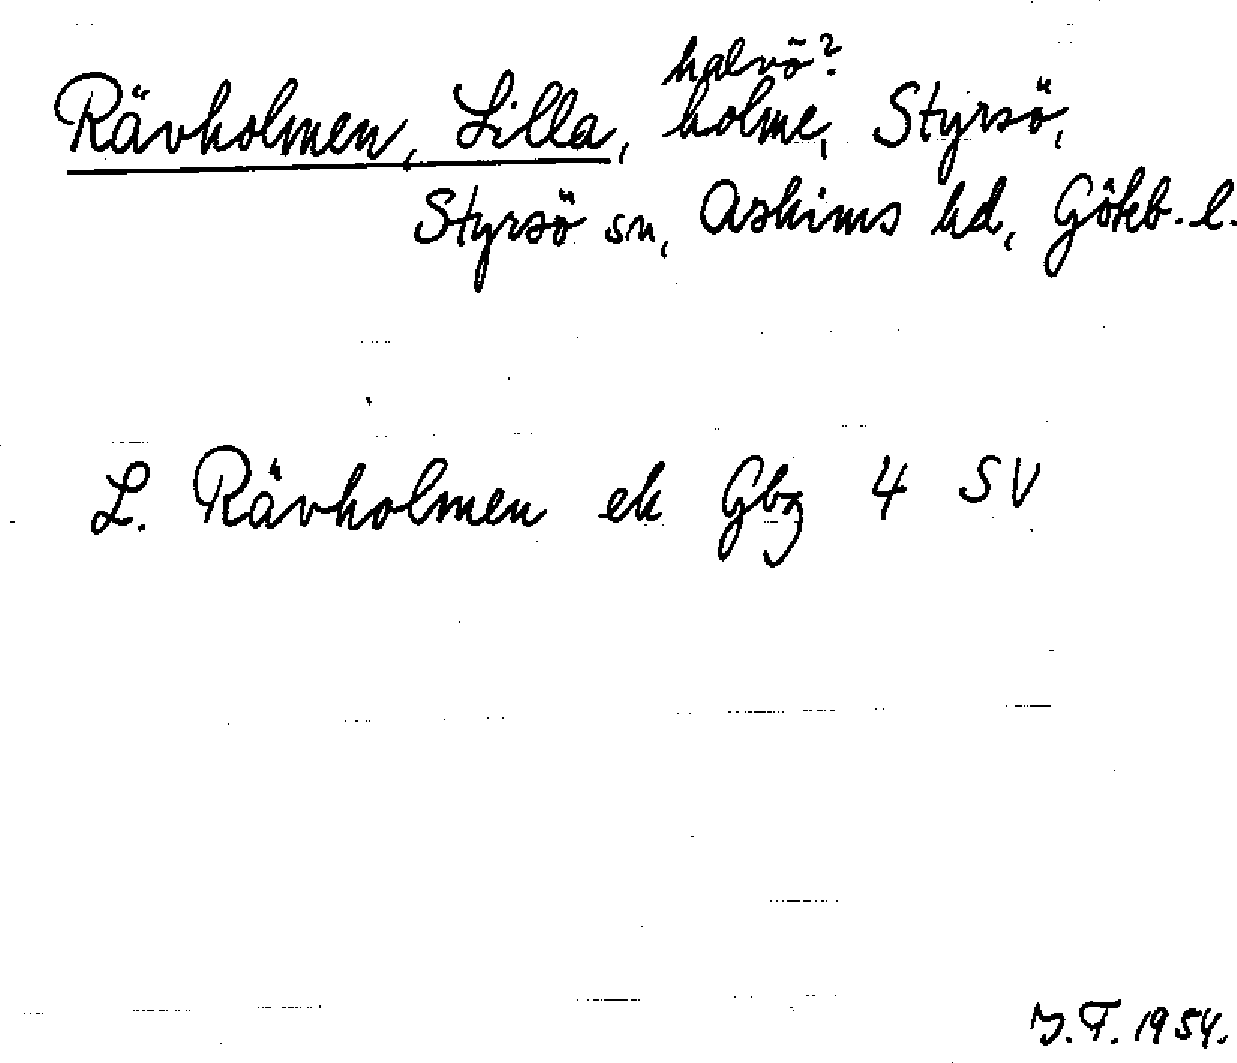 halvö?
Rävholmen, Lilla, holme, Styrsö,
Styrsö sn, Askims hd, Göteb. l.
L. Rävholmen ek Gbg 4 SV
J.T. 1954.